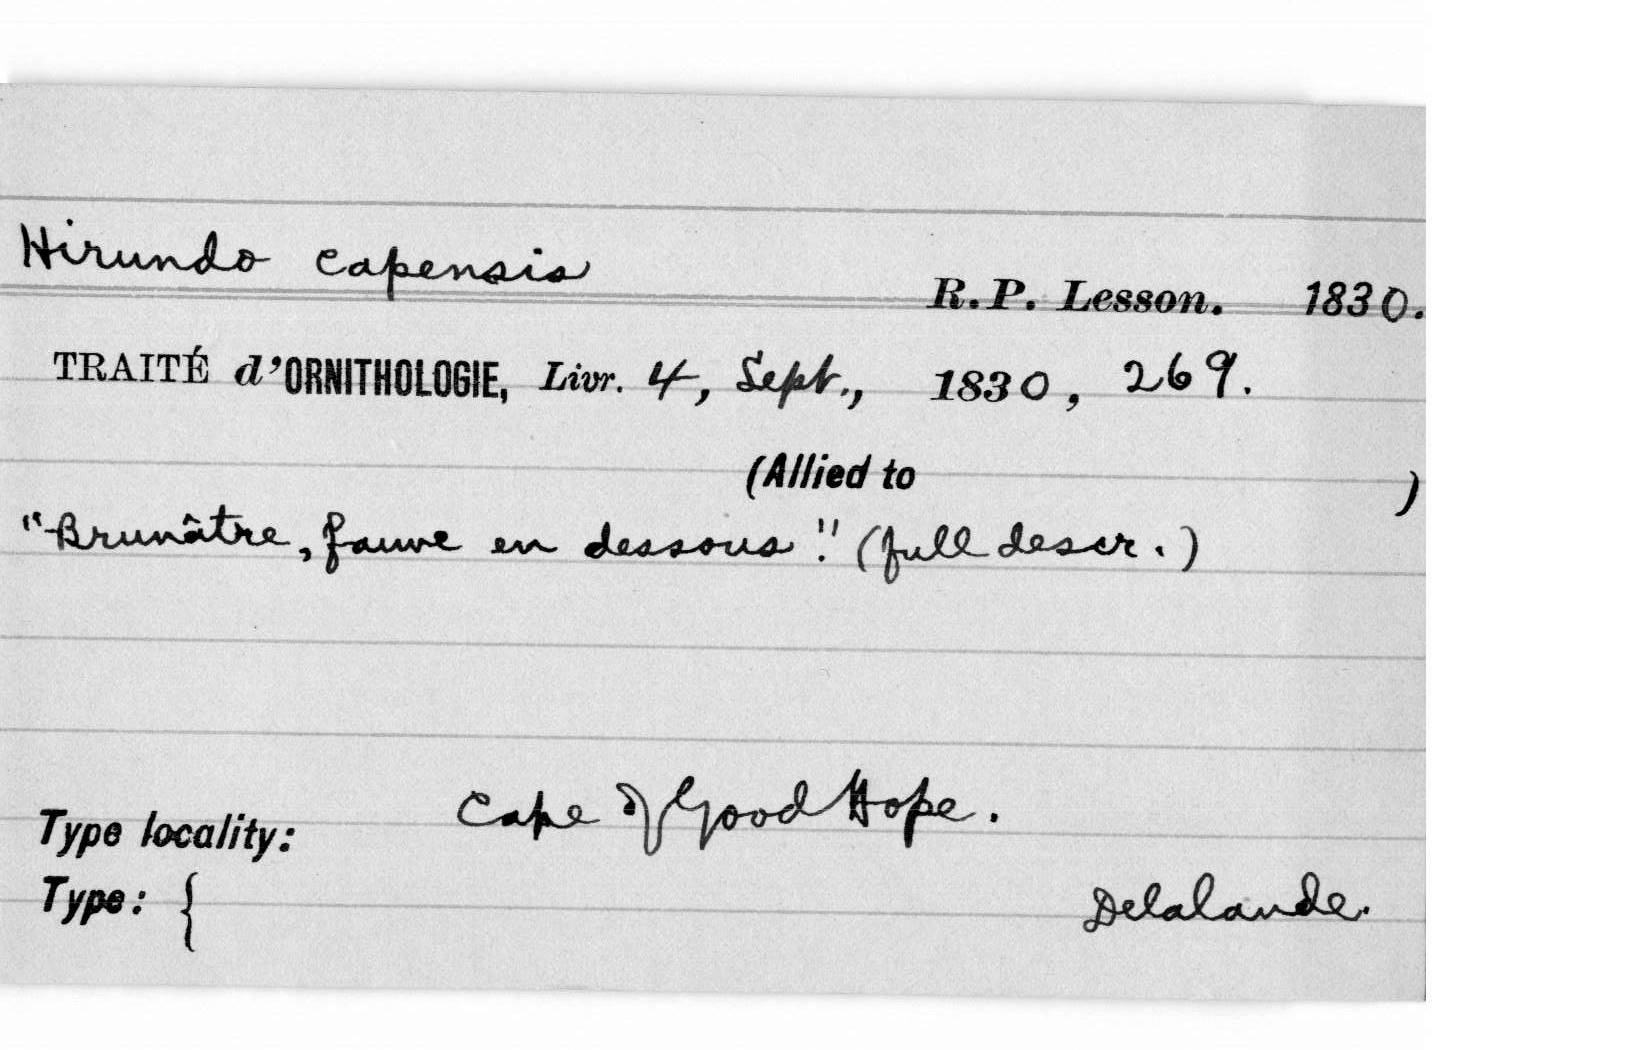 Hirundo capensis
R. P. Lesson. 1830.
TRAITÉ d'ORNITHOLOGIE, Livr. 4, Sept., 1830, 269.
(Allied to )
"Brunâtre, fauve en dessous." (full descr.)
Type locality: Cape of Good Hope.
Type: { Delalande.